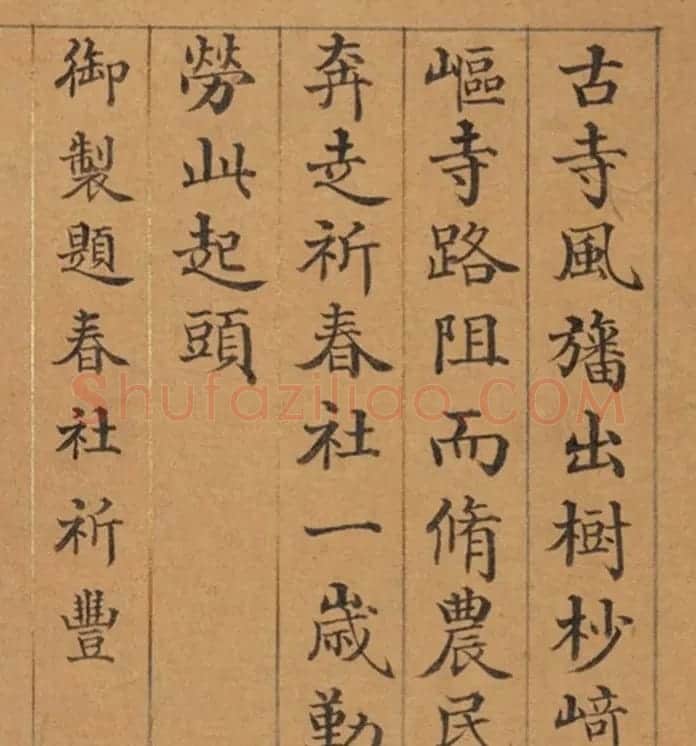 古寺風旛出樹杪﨑
嶇寺路阻而脩農民
奔走祈春社一歳勤
勞此起頭
御製題春社祈豐
Shufaziliao.COM